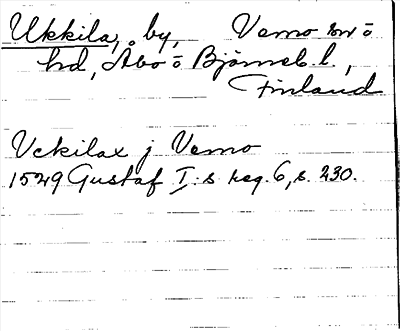 Ukkila, by, Vemo sn o
hd, Åbo o Björneb. l.,
Finland
Vckilax j Vemo
1529 Gustaf I:s reg. 6, s. 230.